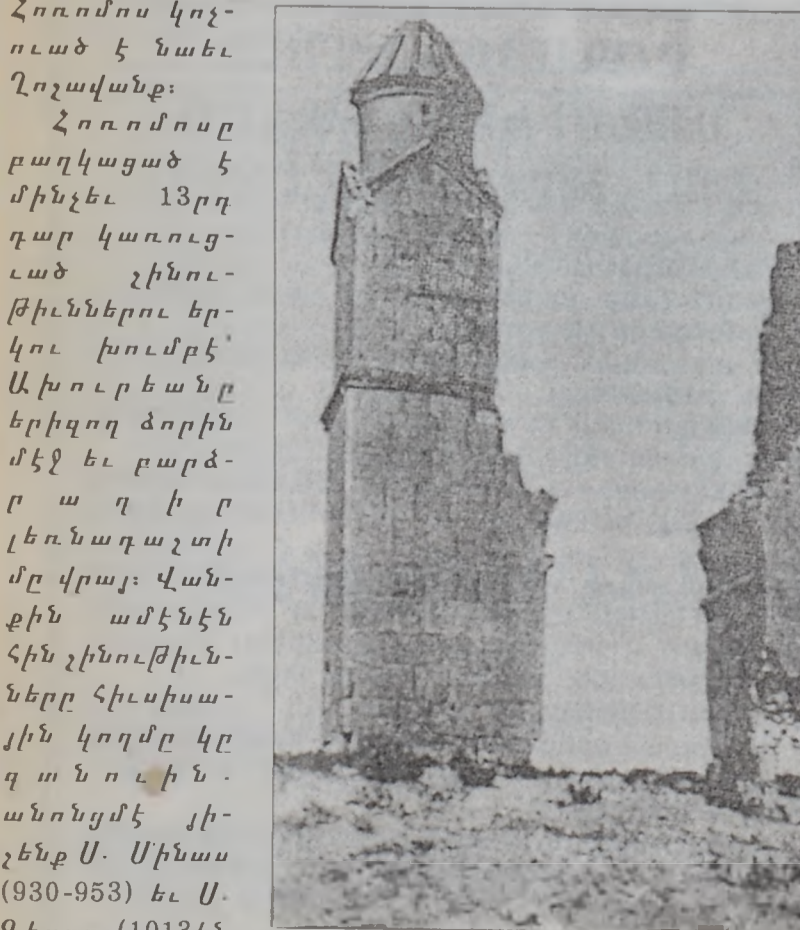 Հոռոմոս կոչ-
ուած է նաեւ
Ղոշավանք։
Հոռոմոսը
բաղկացած է
մինչեւ 13րդ
դար կառուց-
ւած շինու-
թիւններու եր-
կու խումբէ՝
Ախուրեանը
երիզող ձորին
մէջ եւ բարձ-
ր ա դ ի ր
լեռնադաշտի
մը վրայ։ Վան-
քին ամէնէն
հին շինութիւն-
ները հիւսիսա-
յին կողմը կը
գտնուին.
անոնցմէ յի-
շենք Ս. Մինաս
(930-953) եւ Ս.